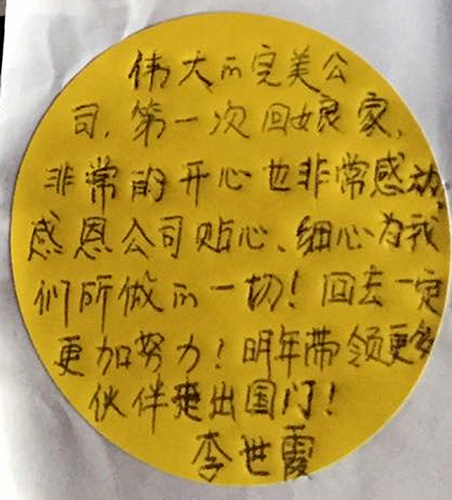 伟大的完美公
司,第一次回娘家,
非常的开心也非常感动,
感恩公司贴心、细心为我
们所做的一切!回去一定
更加努力!明年带领更多
伙伴走出国门!
李世霞